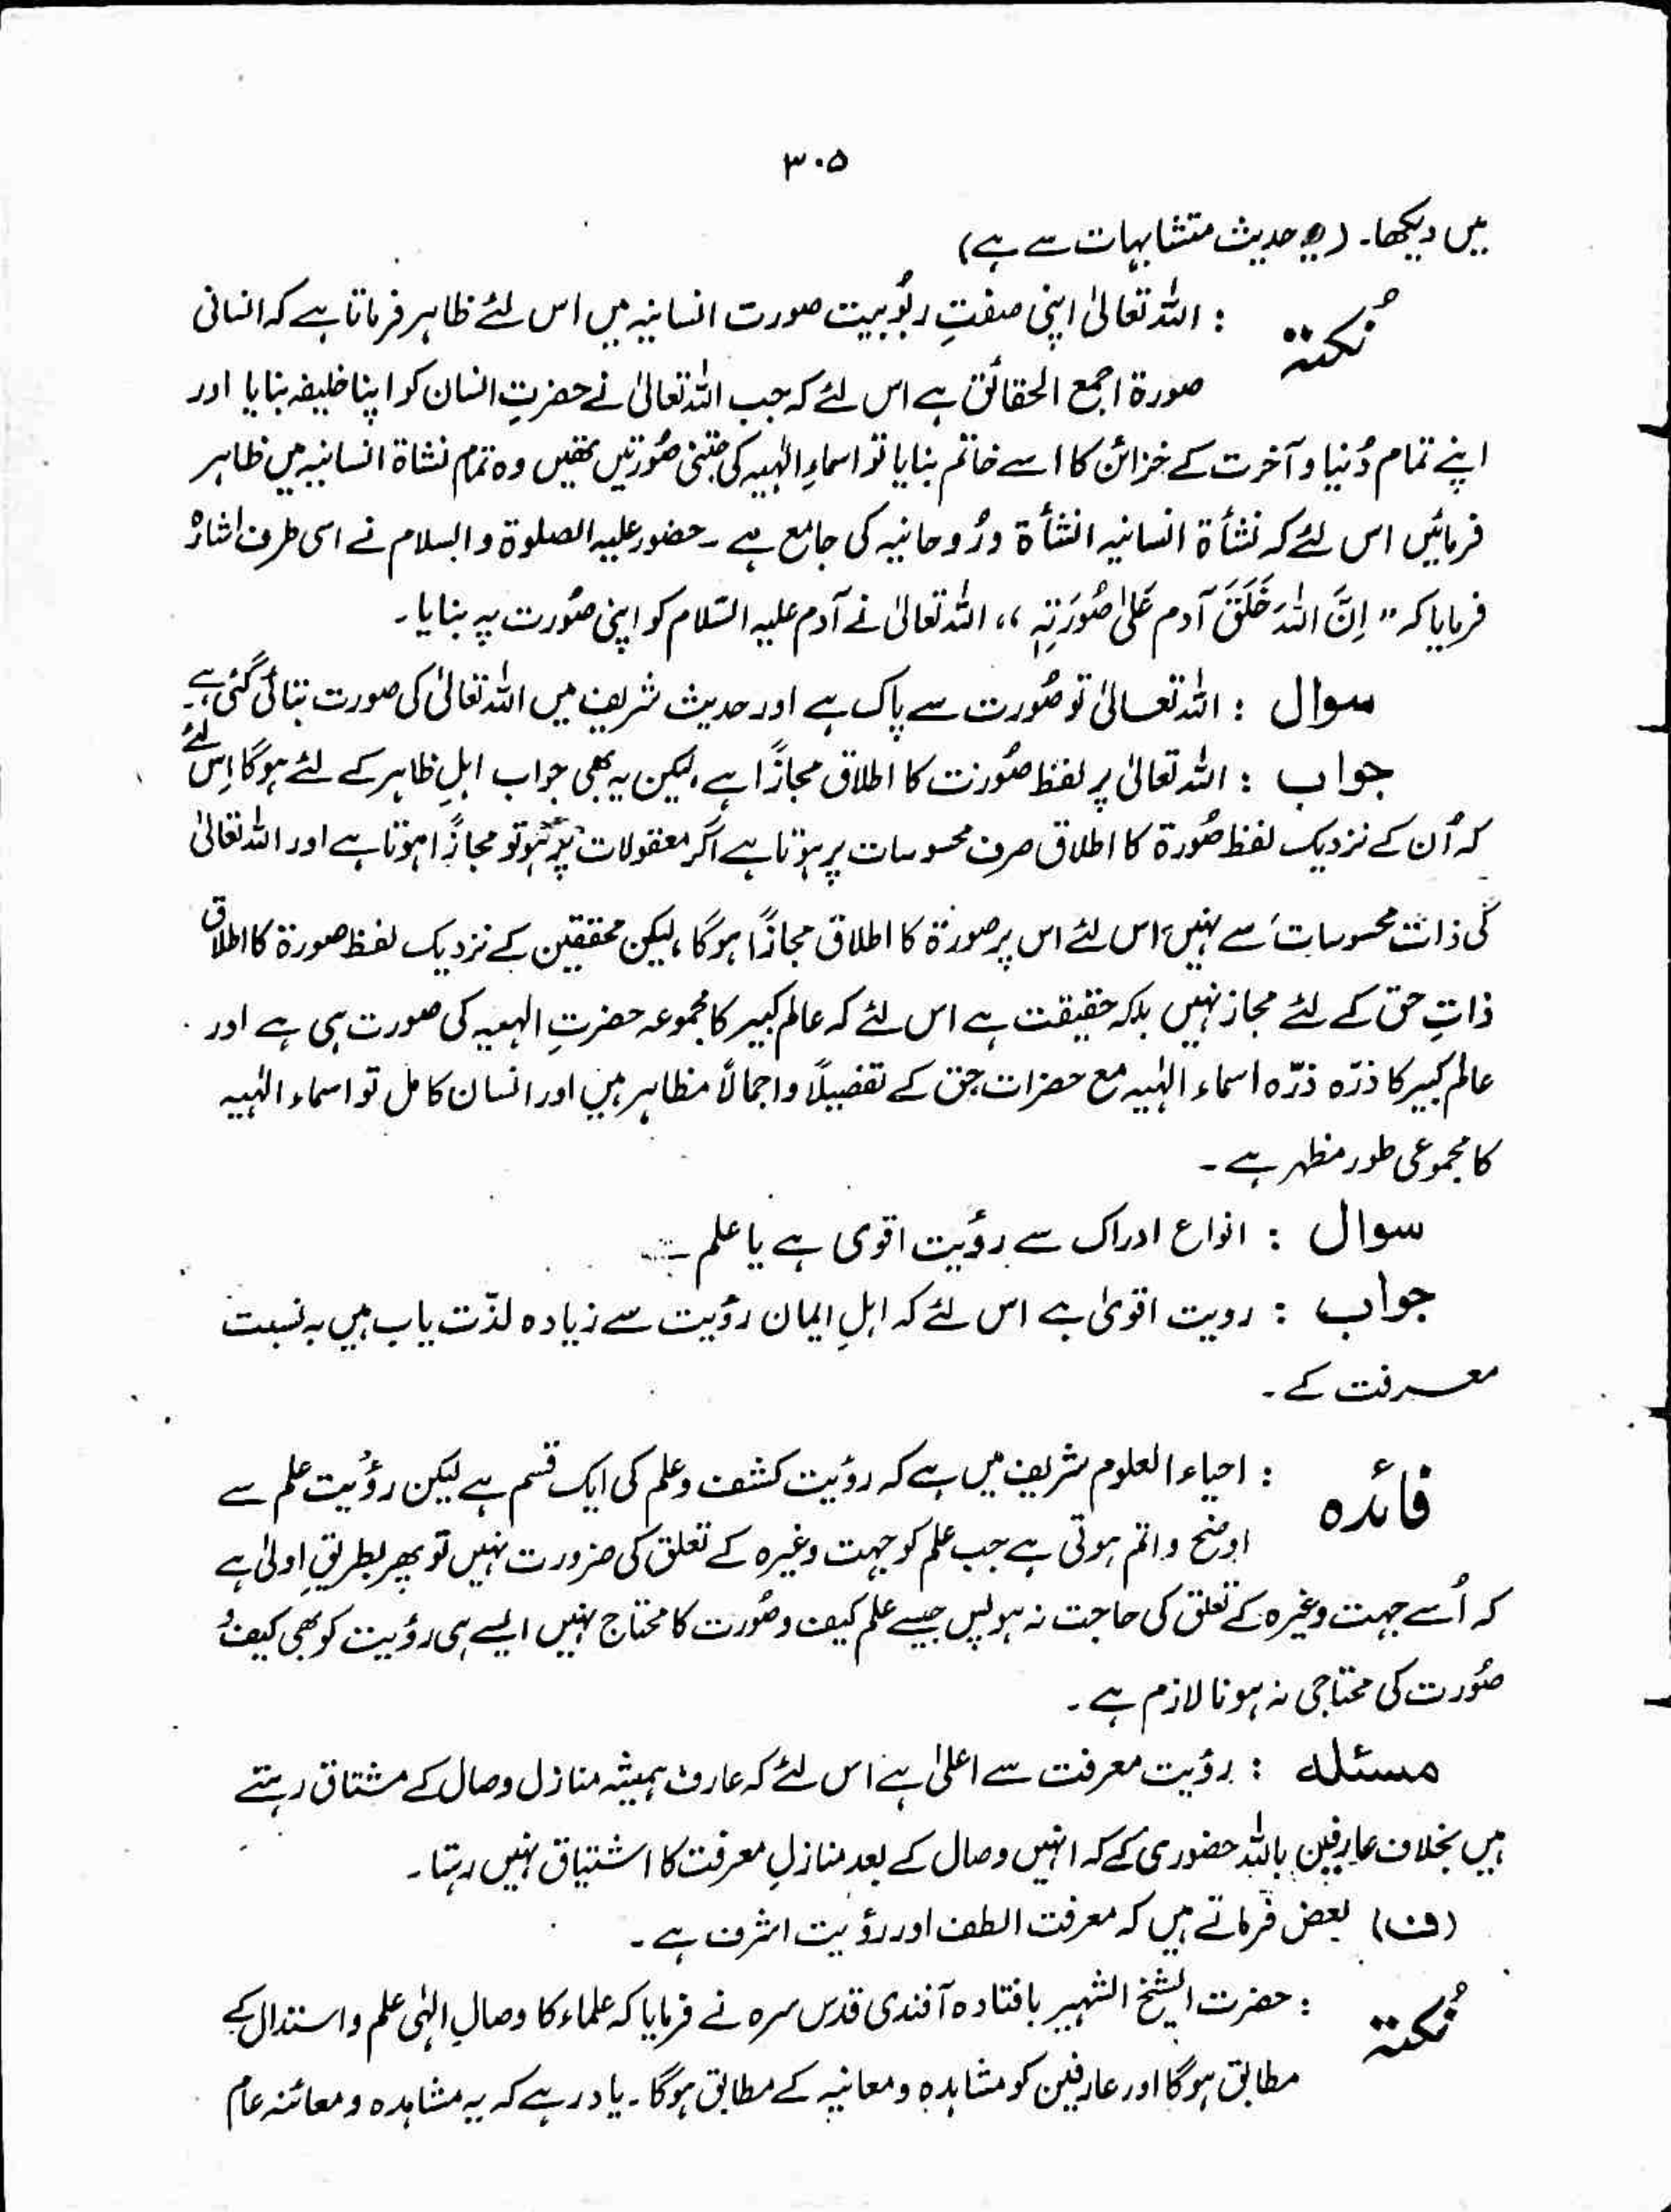 ۳۰۵
میں دیکھا۔ (یہ حدیث متشابہات سے ہے)
نُکتۃ : اللہ تعالیٰ اپنی صفتِ ربُوبیت صورت انسانیہ میں اس لئے ظاہر فرماتا ہے کہ انسانی
صورۃ اجمع الحقائق ہے اس لئے کہ جب اللہ تعالیٰ نے حضرتِ انسان کو اپنا خلیفہ بنایا اور
اپنے تمام دُنیا و آخرت کے خزائن کا اسے خاتم بنایا تو اسماءِ الٰہیہ کی جتنی صُورتیں تھیں وہ تمام نشاۃ انسانیہ میں ظاہر
فرمائیں اس لئے کہ نشأۃ انسانیہ انشأۃ ورُوحانیہ کی جامع ہے ۔ حضور علیہ الصلوۃ والسلام نے اسی طرف اشارہ
فرمایا کہ " اِنَّ اللہَ خَلَقَ آدم عَلیٰ صُورَتِہٖ ،، اللہ تعالیٰ نے آدم علیہ السّلام کو اپنی صُورت پہ بنایا ۔
سوال : اللہ تعالیٰ تو صُورت سے پاک ہے اور حدیث شریف میں اللہ تعالیٰ کی صورت بتائی گئی ہے۔
جواب : اللہ تعالیٰ پر لفظ صُورت کا اطلاق مجازاً ہے ، لیکن یہ بھی جواب اہلِ ظاہر کے لئے ہوگا اِس لئے
کہ اُن کے نزدیک لفظ صُورۃ کا اطلاق صرف محسوسات پر ہوتا ہے اگر معقولات پر ہو تو مجازاً ہوتا ہے اور اللہ تعالیٰ
کی ذات محسوسات سے نہیں اس لئے اس پر صورۃ کا اطلاق مجازاً ہوگا ، لیکن محققین کے نزدیک لفظ صورۃ کا اطلاق
ذاتِ حق کے لئے مجاز نہیں بلکہ حقیقت ہے اس لئے کہ عالم کبیر کا مجموعہ حضرتِ الہیہ کی صورت ہی ہے اور
عالم کبیر کا ذرّہ ذرّہ اسماء الٰہیہ مع حضرات حق کے تفصیلاً و اجمالاً مظاہر ہیں اور انسان کامل تو اسماء الٰہیہ
کا مجموعی طور مظہر ہے ۔
سوال : انواع ادراک سے رؤیت اقوی ہے یا علم
جواب : رویت اقویٰ ہے اس لئے کہ اہلِ ایمان رؤیت سے زیادہ لذّت یاب ہیں بہ نسبت
معرفت کے ۔
فائدہ : احیاء العلوم شریف میں ہے کہ رؤیت کشف و علم کی ایک قسم ہے لیکن رؤیت علم سے
اوضح و اتم ہوتی ہے جب علم کو جہت وغیرہ کے تعلق کی ضرورت نہیں تو پھر بطریقِ اولیٰ ہے
کہ اُسے جہت وغیرہ کے تعلق کی حاجت نہ ہو پس جیسے علم کیف و صُورت کا محتاج نہیں ایسے ہی رؤیت کو بھی کیف و
صُورت کی محتاجی نہ ہونا لازم ہے ۔
مسئلہ : رؤیت معرفت سے اعلیٰ ہے اس لئے کہ عارف ہمیشہ منازل وصال کے مشتاق رہتے
ہیں بخلاف عارفین باللہ حضوری کے کہ انہیں وصال کے بعد منازلِ معرفت کا اشتیاق نہیں رہتا ۔
(ف) بعض فرماتے ہیں کہ معرفت الطف اور رؤیت اشرف ہے ۔
نُکتۃ : حضرت الشیخ الشہیر بافتادہ آفندی قدس سرہ نے فرمایا کہ علماء کا وصالِ الٰہی علم و استدلال کے
مطابق ہوگا اور عارفین کو مشاہدہ و معانیہ کے مطابق ہوگا ۔ یاد رہے کہ یہ مشاہدہ و معائنہ عام